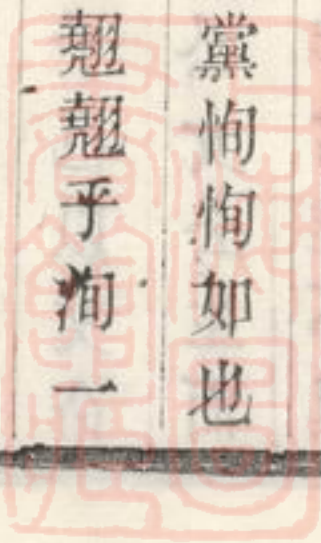 黨恂恂如也
翹翹乎洵一